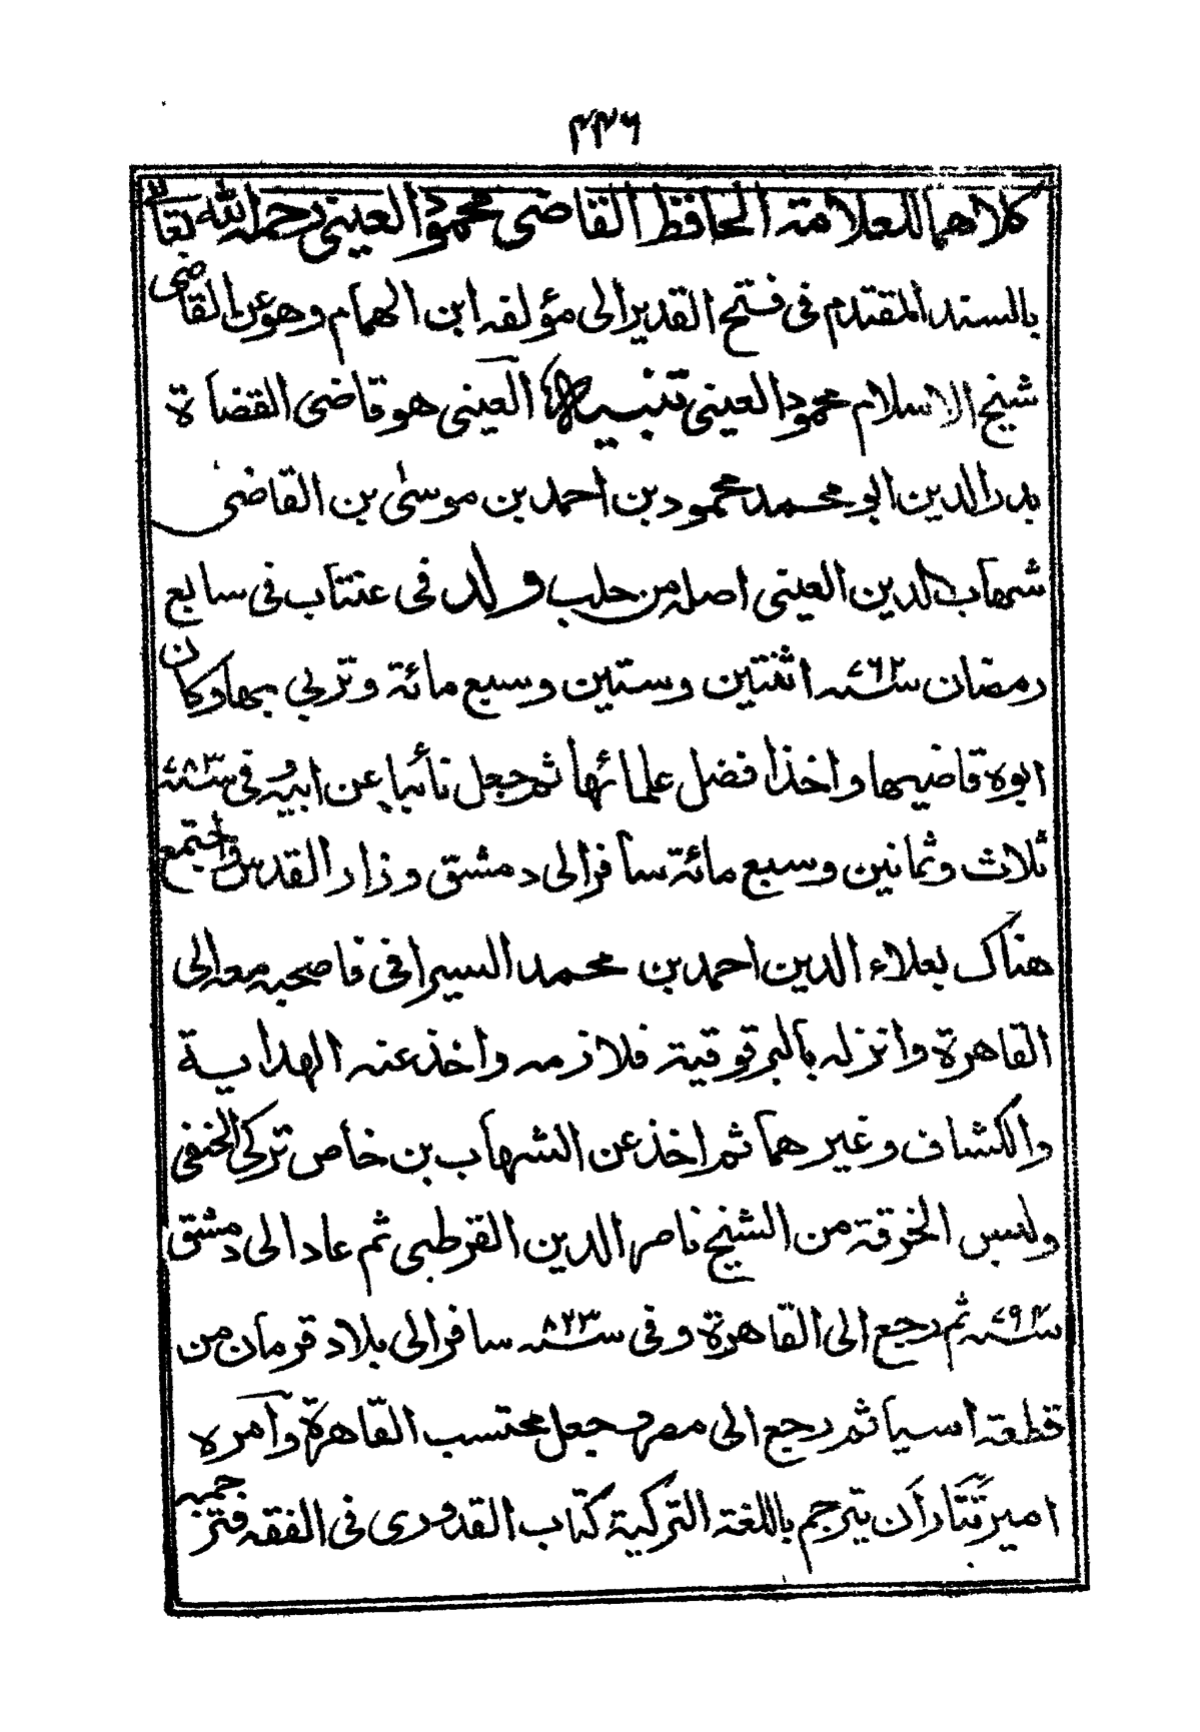 ٤٤٦
كلاهما للعلامة الحافظ القاضي محمود العيني رحمه الله تعالى
بالسند المقتدم فى فتح القدير الى مؤلفه ابن الهمام وهو عن القاضى
شيخ الاسلام محمود العينى تنبيه العينى هو قاضى القضاة
بدر الدين ابو محمد محمود بن احمد بن موسى بن القاضى
شهاب الدين العينى اصله من حلب ولد فى عنتاب فى سابع
رمضان سنة ٧٦٢ اثنتين وستين وسبع مائة وتربى بها وكان
ابوه قاضيها واخذ افضل علمائها ثم جعل نائبا عن ابيه فى سنة ٧٨٣
ثلاث وثمانين وسبع مائة سافر الى دمشق وزار القدس واجتمع
هناك بعلاء الدين احمد بن محمد السيرافى فاصحبه معه الى
القاهرة وانزله بالبرقوقية فلازمه واخذ عنه الهداية
والكشاف وغيرهما ثم اخذ عن الشهاب بن خاص تركى الحنفى
ولبس الخرقة من الشيخ ناصر الدين القرطبى ثم عاد الى دمشق
سنة ٧٩٤ ثم رجع الى القاهرة وفى سنة ٨٢٣ سافر الى بلاد قرمان من
قطعة اسيا ثم رجع الى مصر وجعل محتسب القاهرة وآمره
امير تتار أن يترجم باللغة التركية كتاب القدورى فى الفقه فترجمه